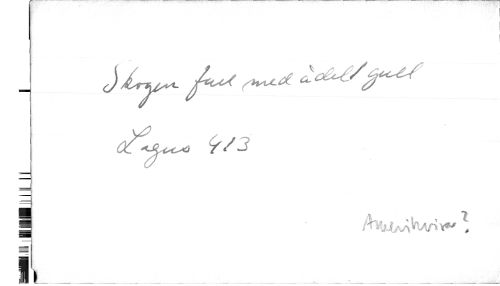 Skogen full med ädelt gull
Lagus 413
Amerikvisa?